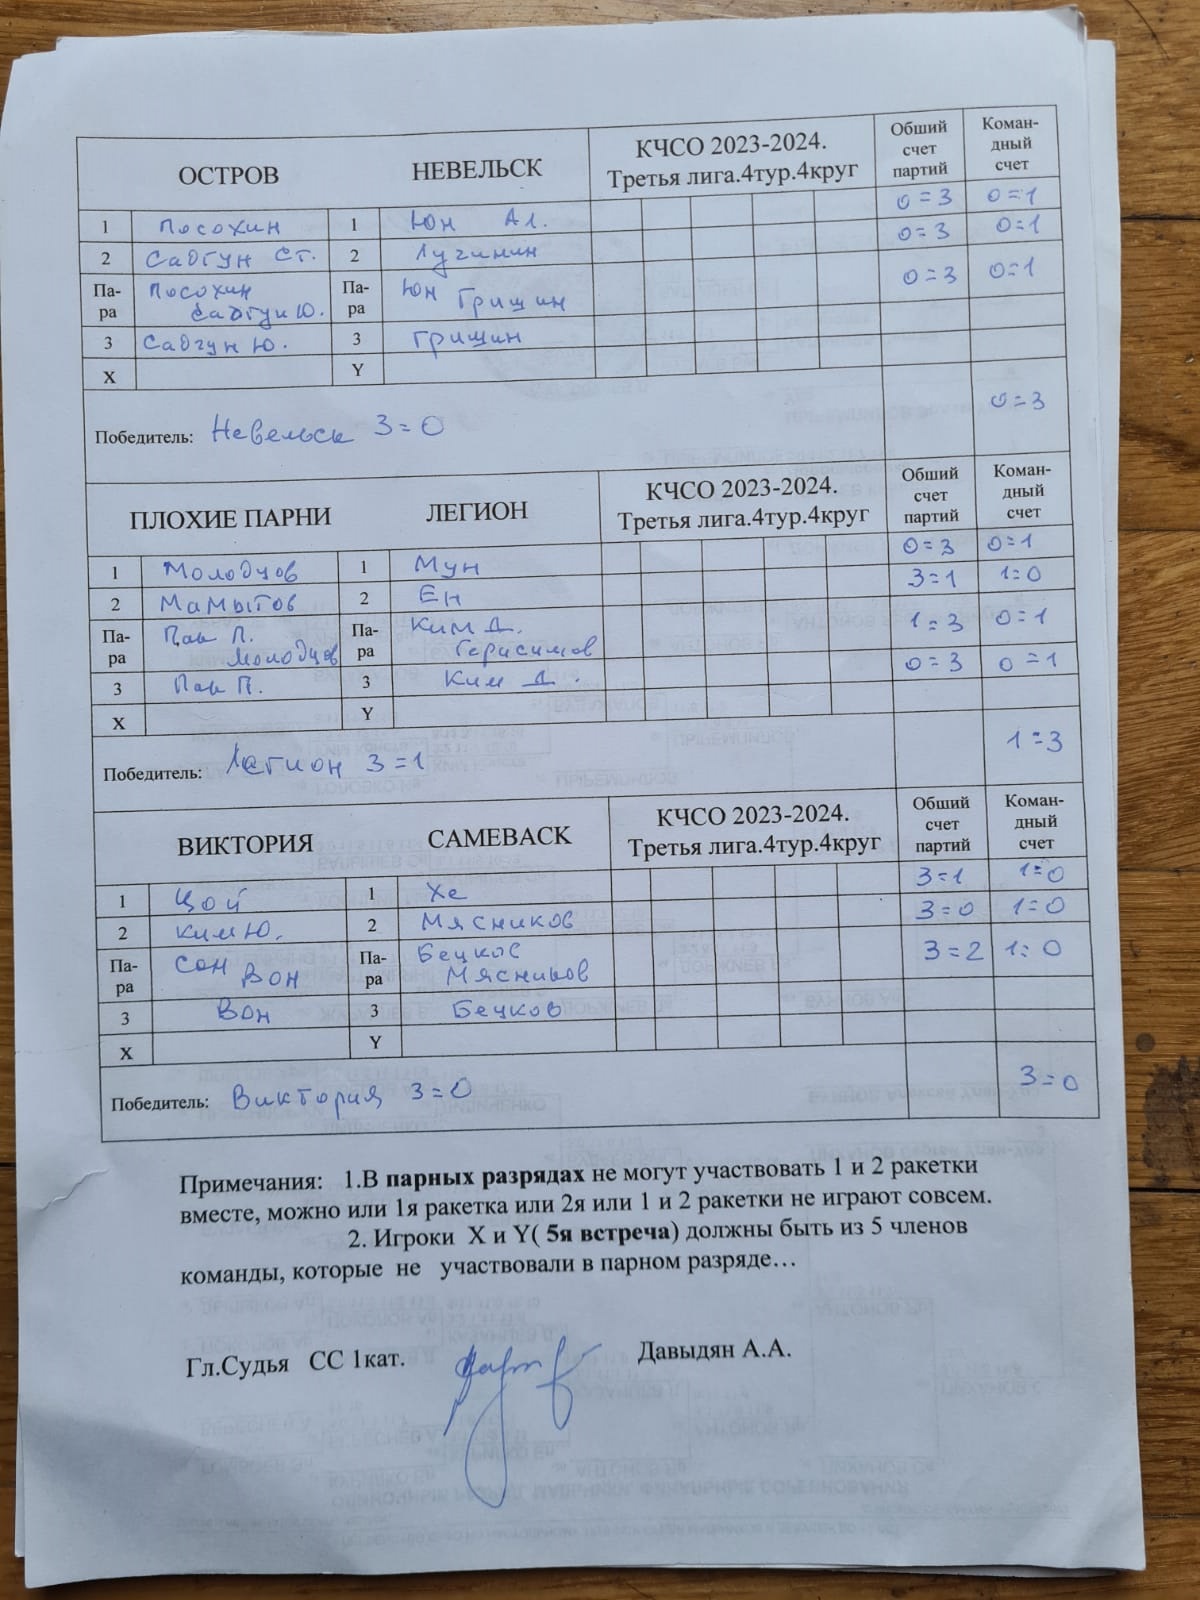 ОСТРОВ НЕВЕЛЬСК КЧСО 2023-2024. Третья лига.4тур.4круг Обший счет партий Коман-дный счет
1 Посохин 1 Юн Ал. 0=3 0=1
2 Садгун Ст. 2 Лучинин 0=3 0=1
Па-ра Посохин Садгун Ю. Па-ра Юн Гришин 0=3 0=1
3 Садгун Ю. 3 Гришин
X Y
Победитель: Невельск 3=0 0=3
ПЛОХИЕ ПАРНИ ЛЕГИОН КЧСО 2023-2024. Третья лига.4тур.4круг Обший счет партий Коман-дный счет
1 Молодцов 1 Мун 0=3 0=1
2 Мамытов 2 Ен 3=1 1=0
Па-ра Пак П. Молодцов Па-ра Ким Д. Герасимов 1=3 0=1
3 Пак П. 3 Ким Д. 0=3 0=1
X Y
Победитель: Легион 3=1 1=3
ВИКТОРИЯ САМЕВАСК КЧСО 2023-2024. Третья лига.4тур.4круг Обший счет партий Коман-дный счет
1 Цой 1 Хе 3=1 1=0
2 Ким Ю. 2 Мясников 3=0 1=0
Па-ра Сон Вон Па-ра Бецков Мясников 3=2 1=0
3 Вон 3 Бецков
X Y
Победитель: Виктория 3=0 3=0
Примечания: 1.В парных разрядах не могут участвовать 1 и 2 ракетки
вместе, можно или 1я ракетка или 2я или 1 и 2 ракетки не играют совсем.
2. Игроки X и Y( 5я встреча) должны быть из 5 членов
команды, которые не участвовали в парном разряде…
Гл.Судья СС 1кат. Давыдян А.А.